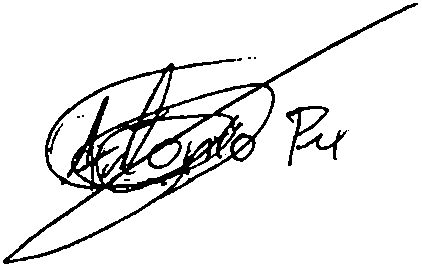 Antonio Pu